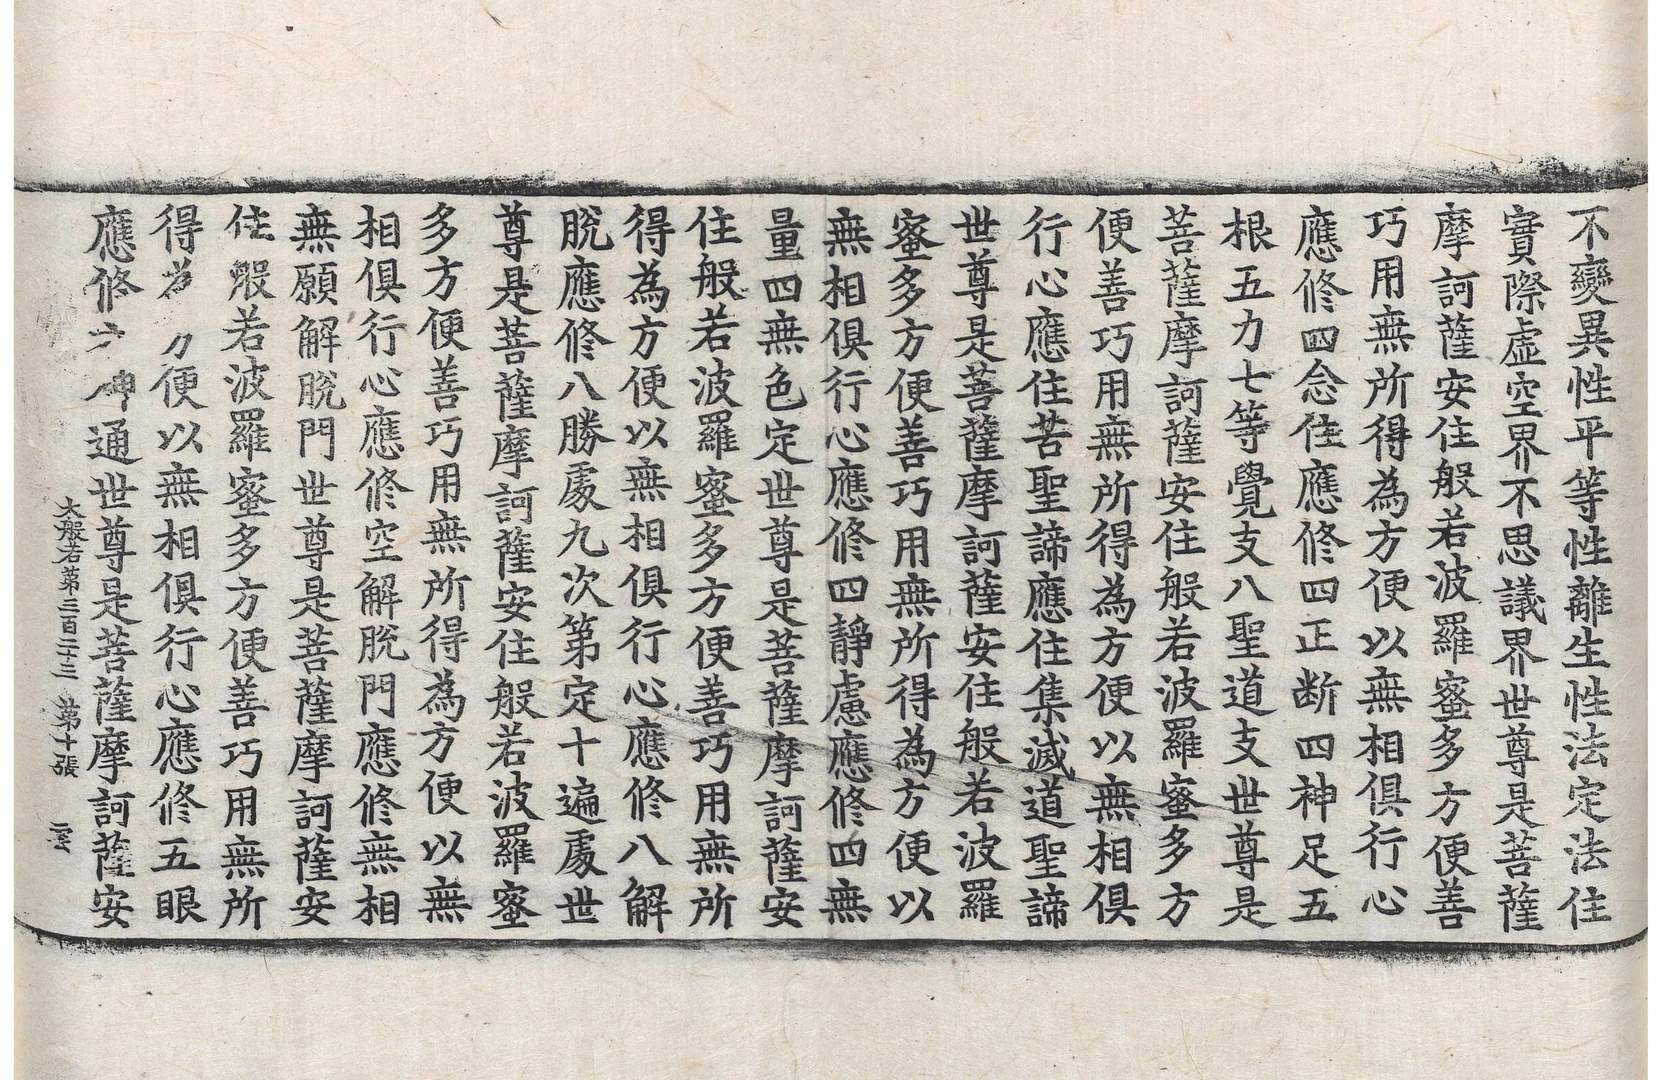 不變異性平等性離生性法定法住
實際虛空界不思議界世尊是菩薩
摩訶薩安住般若波羅蜜多方便善
巧用無所得為方便以無相俱行心
應修四念住應修四正断四神足五
根五力七等覺支八聖道支世尊是
菩薩摩訶薩安住般若波羅蜜多方
便善巧用無所得為方便以無相俱
行心應住苦聖諦應住集滅道聖諦
世尊是菩薩摩訶薩安住般若波羅
蜜多方便善巧用無所得為方便以
無相俱行心應修四靜慮應修四無
量四無色定世尊是菩薩摩訶薩安
住般若波羅蜜多方便善巧用無所
得為方便以無相俱行心應修八解
脫應修八勝處九次第定十遍處世
尊是菩薩摩訶薩安住般若波羅蜜
多方便善巧用無所得為方便以無
相俱行心應修空解脫門應修無相
無願解脫門世尊是菩薩摩訶薩安
住般若波羅蜜多方便善巧用無所
得為方便以無相俱行心應修五眼
應修六神通世尊是菩薩摩訶薩安
大般若第三百二十三 第十張 雲